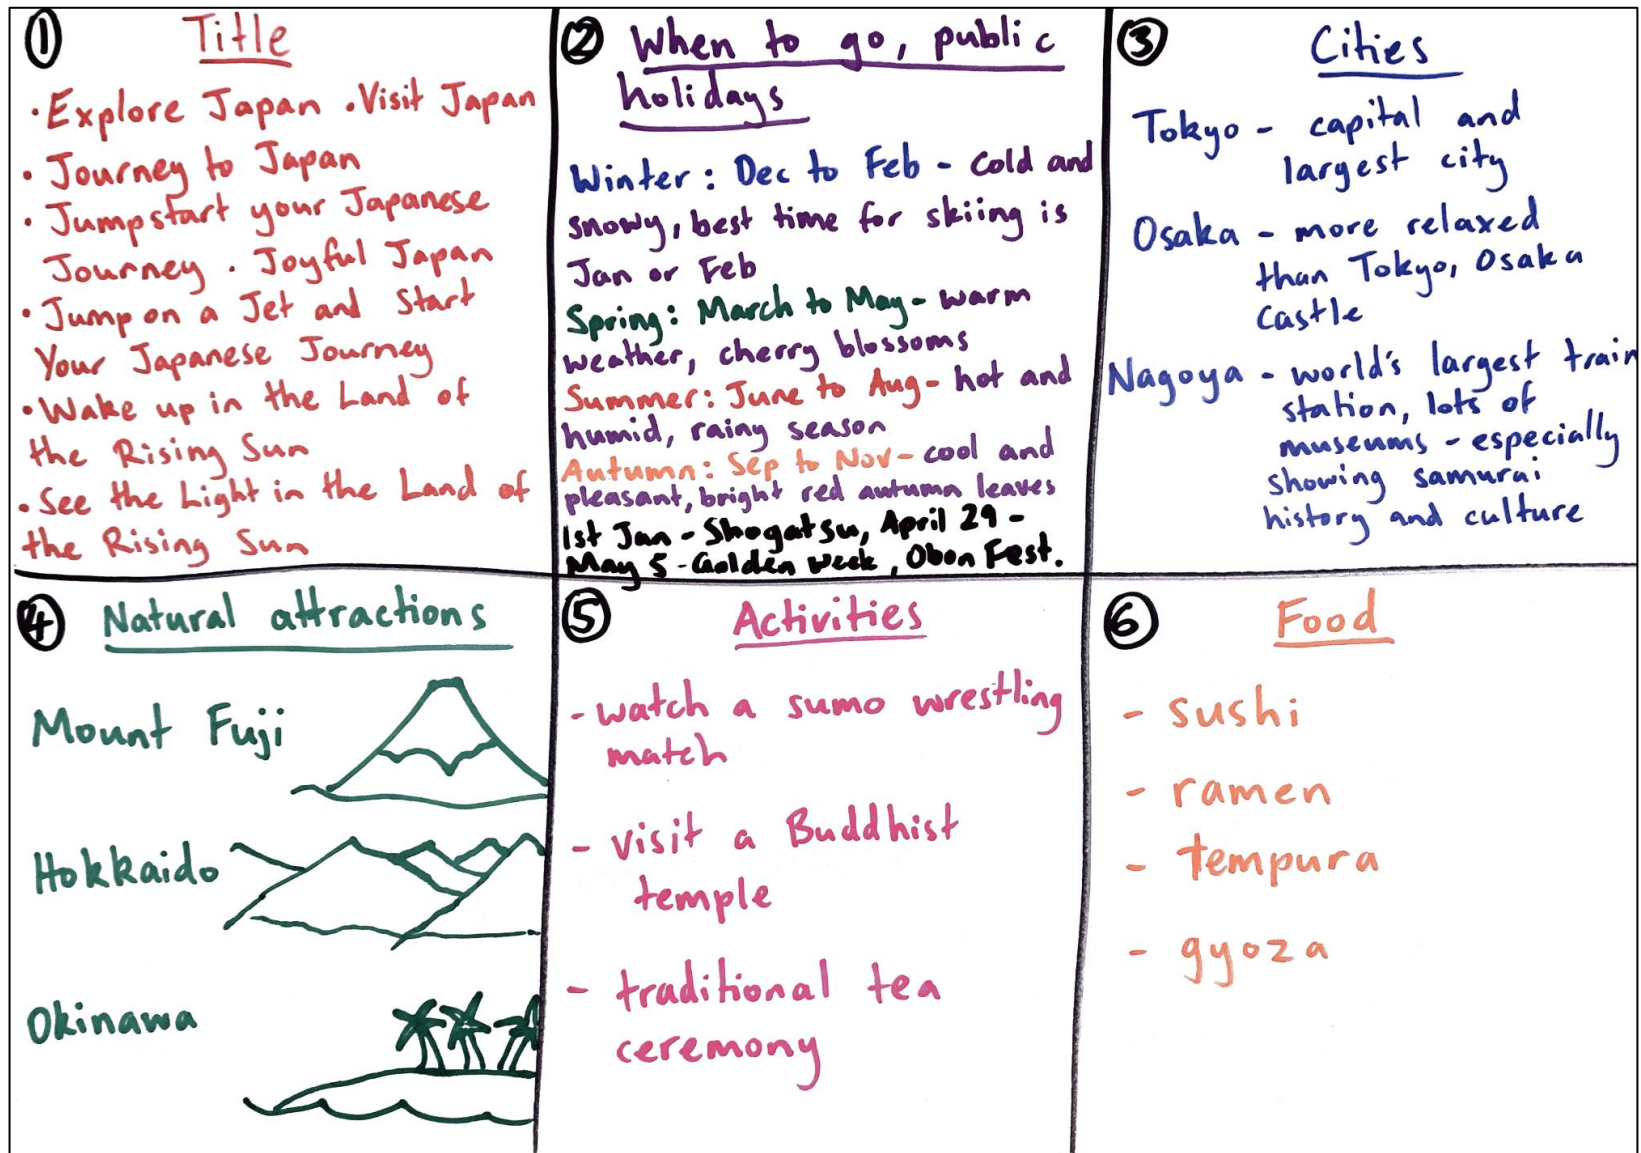 ① Title
·Explore Japan ·Visit Japan
· Journey to Japan
· Jumpstart your Japanese
Journey · Joyful Japan
· Jump on a Jet and Start
Your Japanese Journey
·Wake up in the Land of
the Rising Sun
·See the Light in the Land of
the Rising Sun
② When to go, public
holidays
Winter: Dec to Feb - cold and
snowy, best time for skiing is
Jan or Feb
Spring: March to May - warm
weather, cherry blossoms
Summer: June to Aug - hot and
humid, rainy season
Autumn: Sep to Nov - cool and
pleasant, bright red autumn leaves
1st Jan - Shogatsu, April 29 -
May 5 - Golden Week, Obon Fest.
③ Cities
Tokyo - capital and
largest city
Osaka - more relaxed
than Tokyo, Osaka
Castle
Nagoya - world's largest train
station, lots of
museums - especially
showing samurai
history and culture
④ Natural attractions
Mount Fuji
Hokkaido
Okinawa
⑤ Activities
- watch a sumo wrestling
match
- visit a Buddhist
temple
- traditional tea
ceremony
⑥ Food
- sushi
- ramen
- tempura
- gyoza